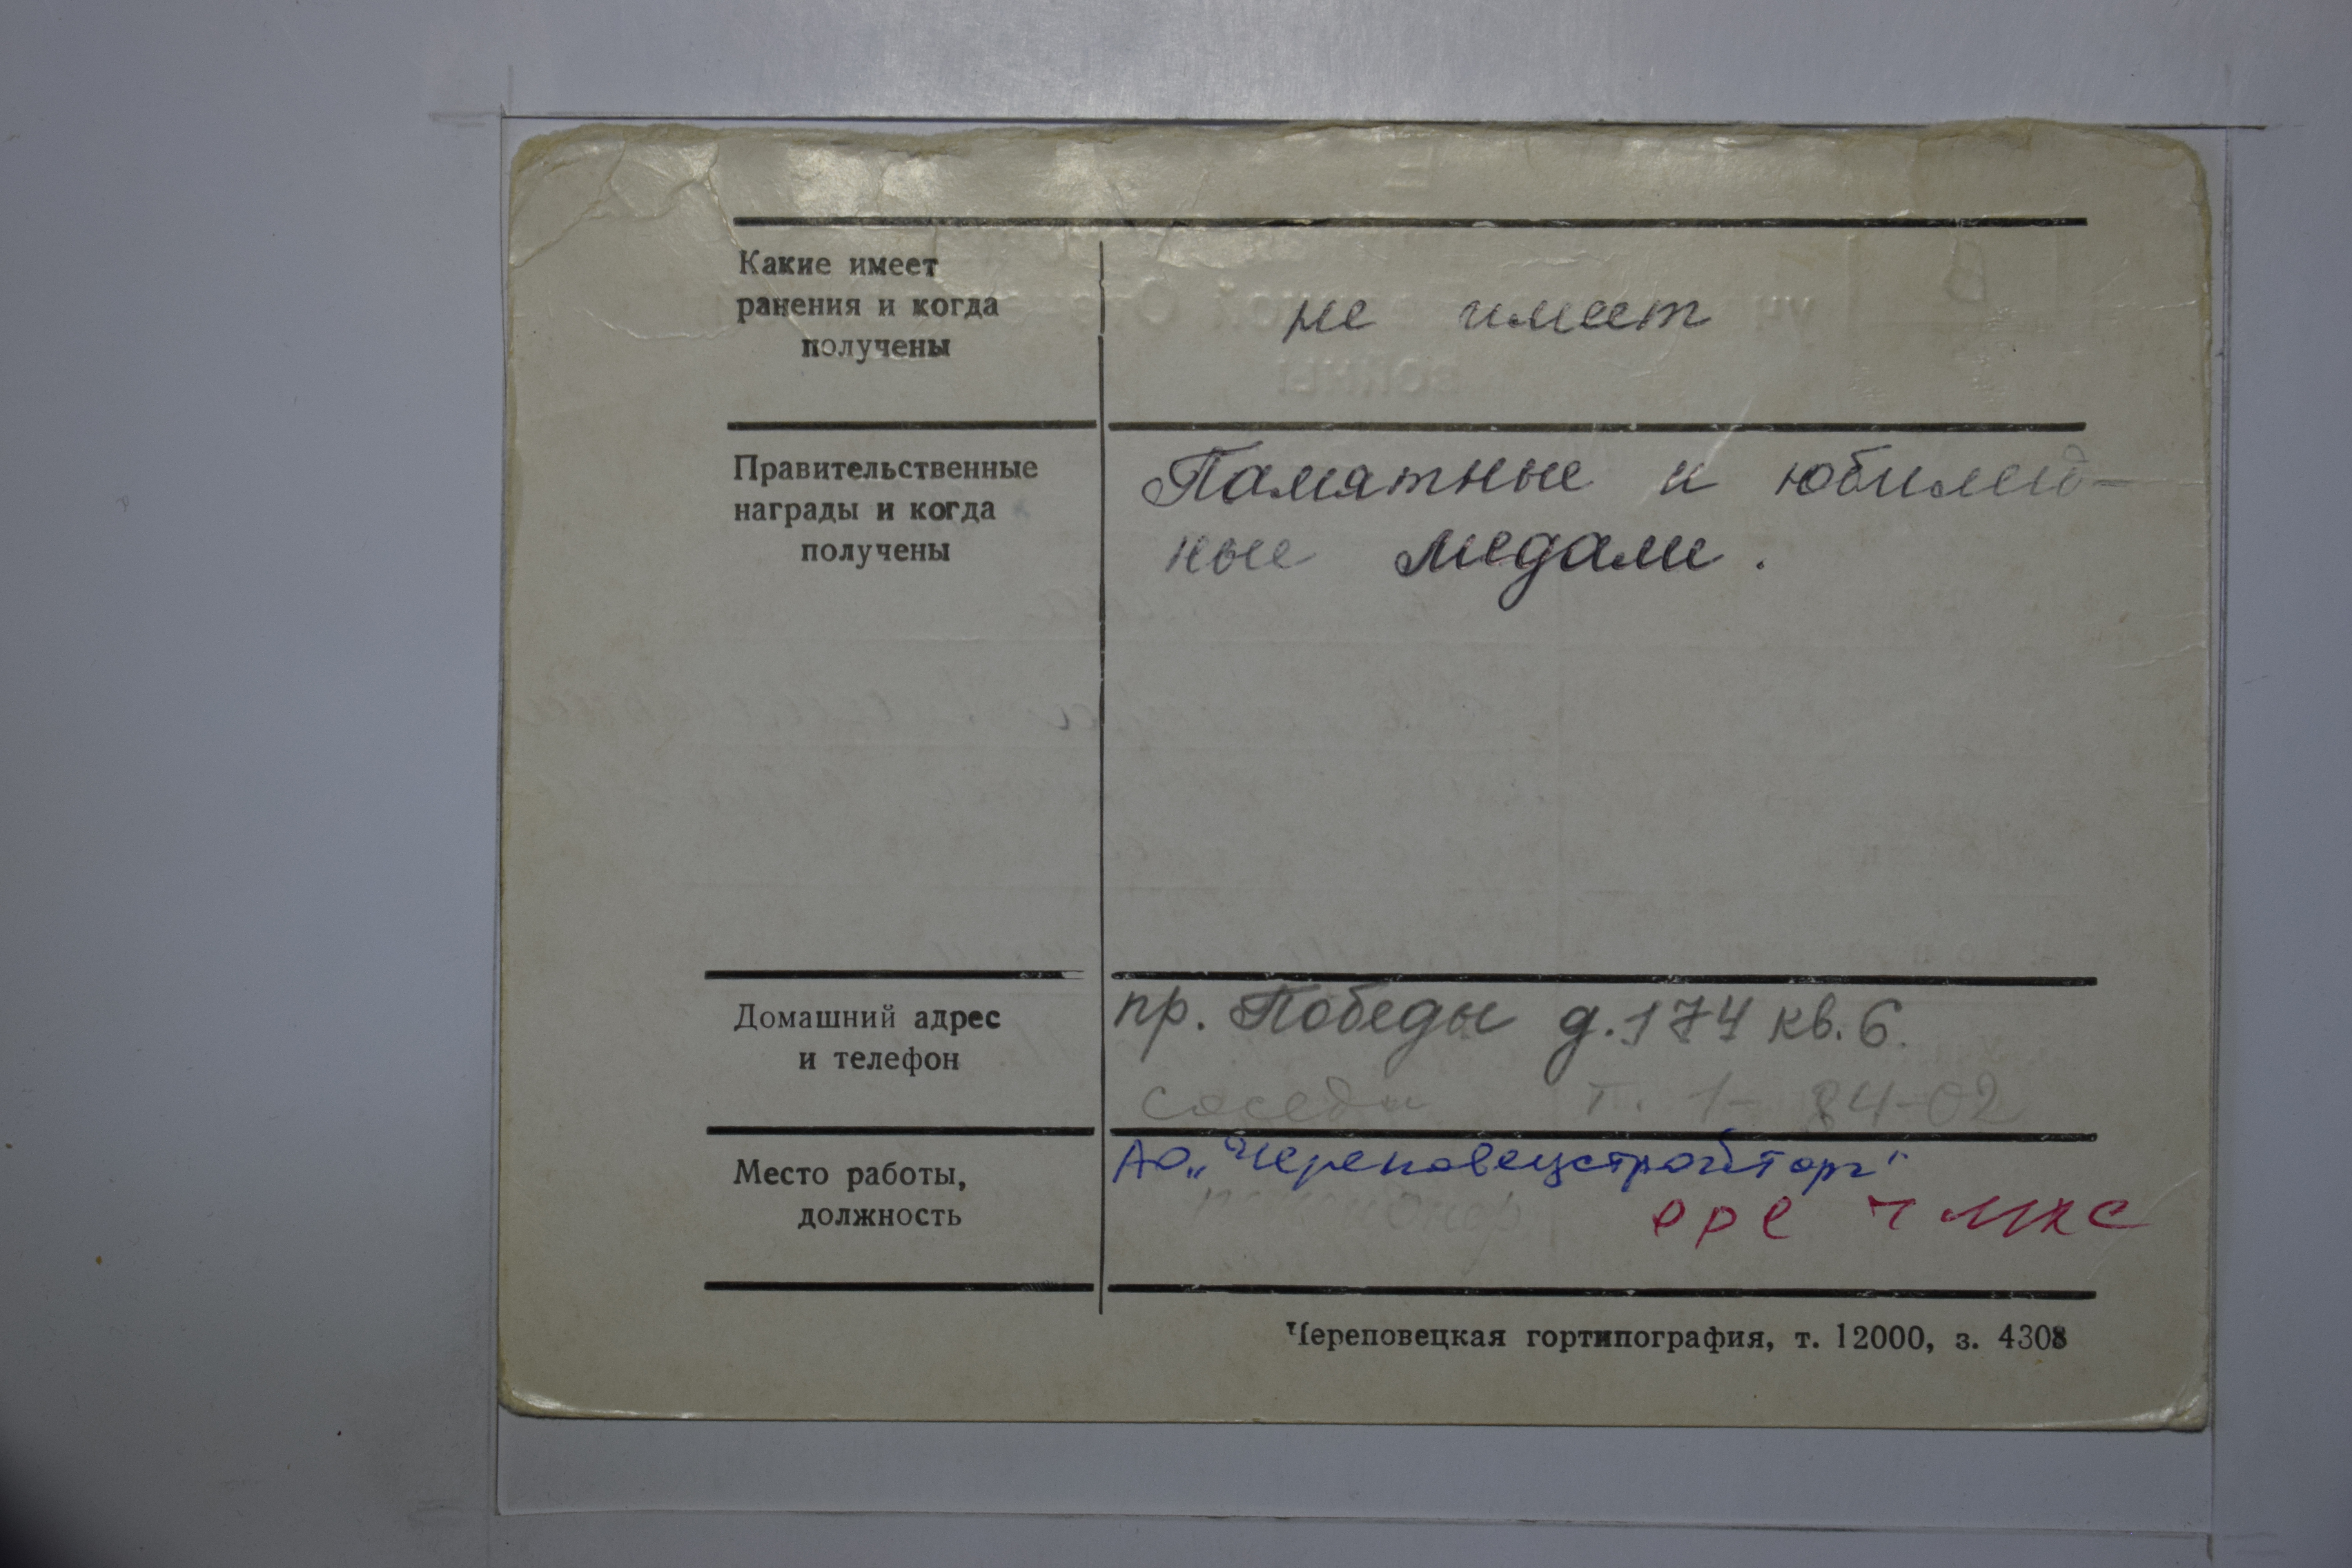 Какие имеет
ранения и когда
получены
не имеет
Правительственные
награды и когда
получены
Памятные и юбилей-
ные медали.
Домашний адрес
и телефон
пр. Победы д. 174 кв. 6.
соседи т. 1-84-02
Место работы,
должность
АО „Череповецстройторг"
пенсионер
Череповецкая гортипография, т. 12000, з. 4308